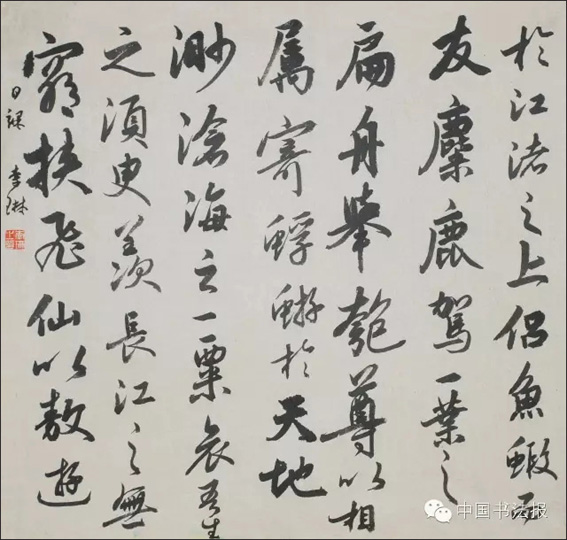 於江渚之上侣魚蝦而
友麋鹿駕一葉之
扁舟舉匏尊以相
属寄蜉蝣於天地
渺滄海之一粟哀吾生
之須臾羨長江之無
窮挾飛仙以敖遊
中国书法报